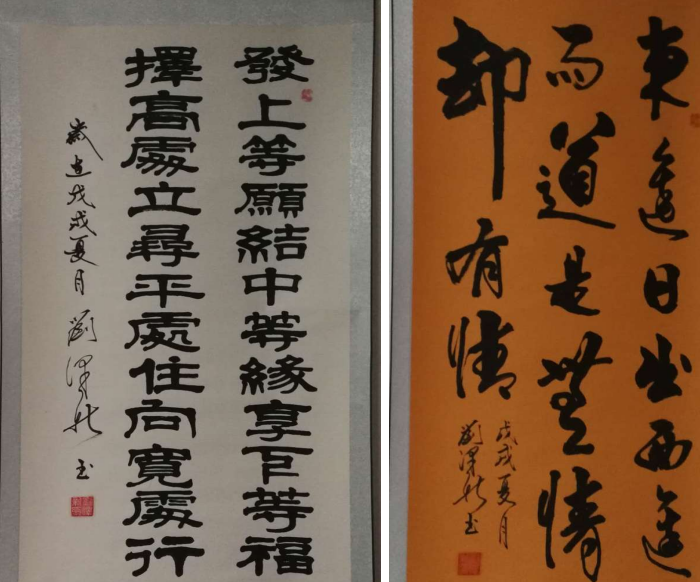 發上等願結中等緣享下等福
擇高處立尋平處住向寬處行
歲戊戌夏月 劉澤
東邊日出西邊
雨道是無情
却有情
戊戌夏月
劉澤